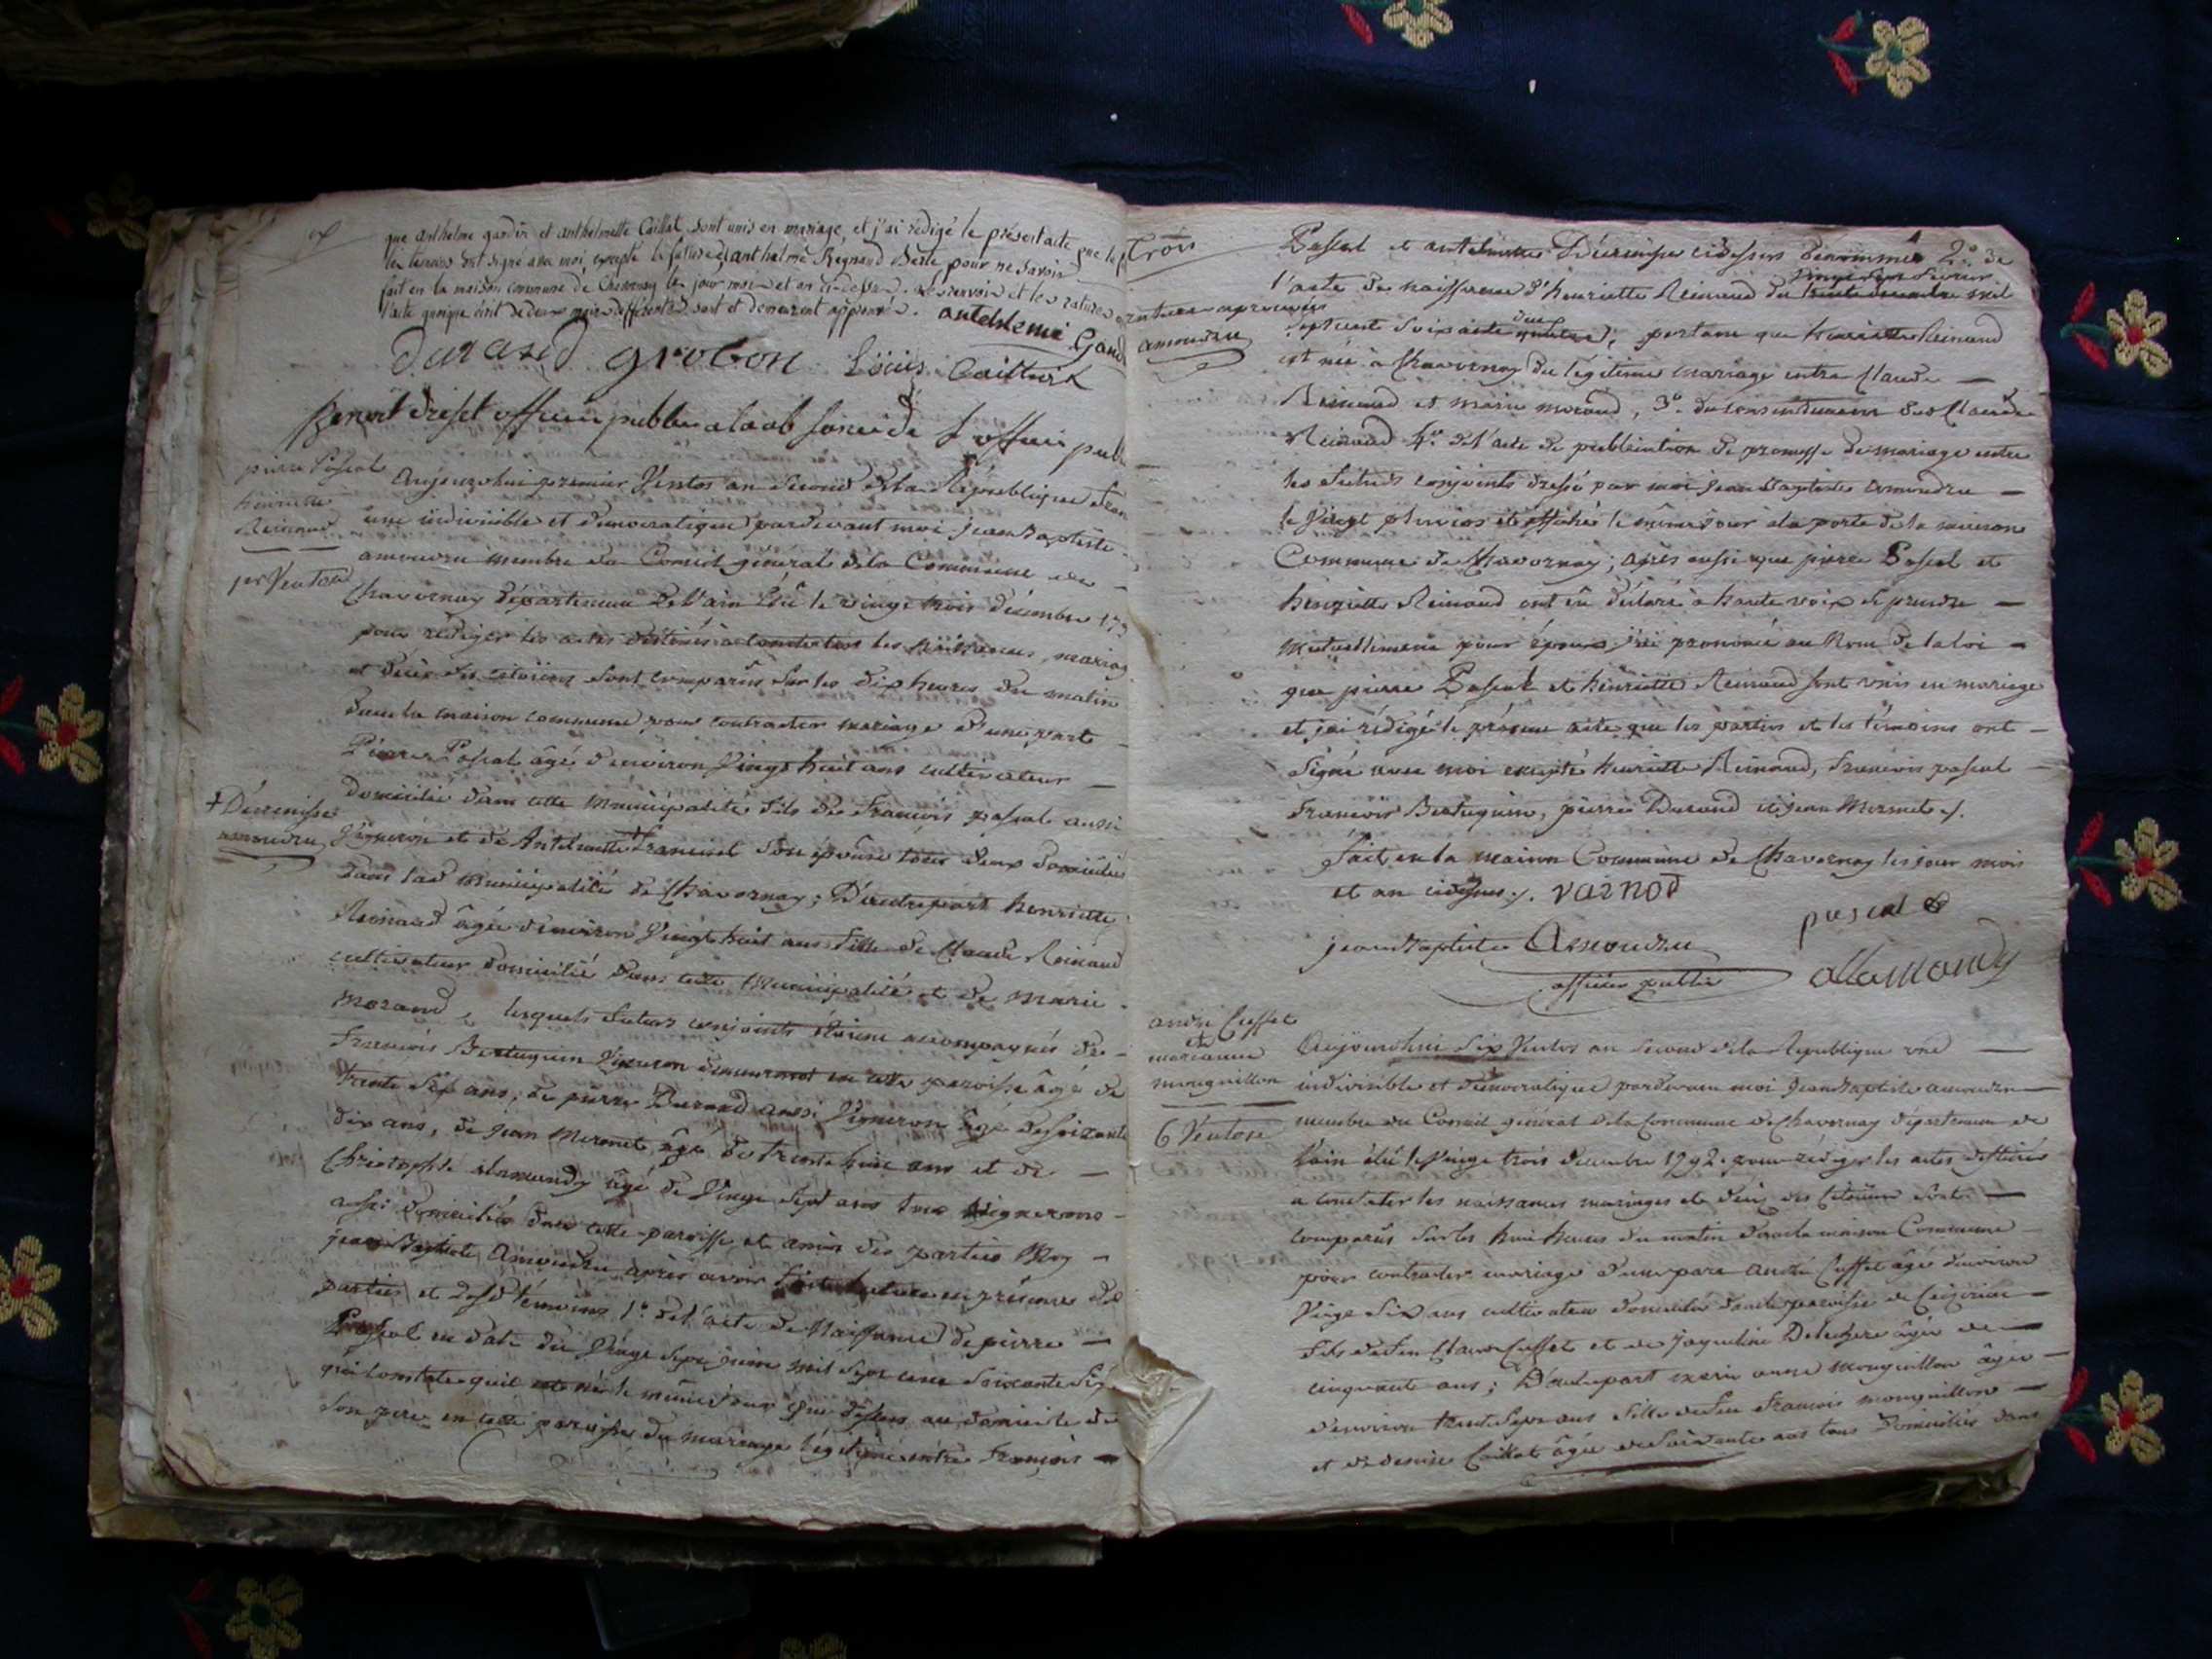 que anthelme gardin et anthelmette Caillat sont unis en mariage, et j'ai rédigé le présent acte que les
les temoins ont signé avec moi, excepté la future et anthelme Reynaud Beste pour ne savoir
fait en la maison commune de Chavornay les jour mois et an ci dessus. et les ratures
l'acte quoique écrit de deux mains differentes sont et demeurent approuvé. antehlemé Gardi
durand grobon Louis Caillat
Benoit drifet officier public a l'ab sence de l officier publ
pierre Pascal
henriette
Reinaud
1er Ventose
Aujourdhui premier Ventos an Second dela République
une indivisible et démocratique pardevant moi jean Baptiste
amoudru membre du Conseil général dela Commune de
Chavornay département De l'ain Elu le vingt trois décembre 179
pour rédiger les actes destinés a constater les naissances, mariag
et décès des citoïens sont comparus sur les dix heures du matin
dans la maison commune, pour contracter mariage d'une part
Pierre Pascal âgé d'environ vingt huit ans cultivateur
domicilié dans cette municipalité fils de François pascal aussi
+ Décrenisse
amoudru
Vigneron et de Antelmette + françoise son épouse tous deux domiciliés
dans lad municipalité de Chavornay; D'autrepart henriette
Reinaud âgée d'environ Vingt huit ans fille de Claude Reinaud
cultivateur domicilié dans cette Municipalité et de Marie
Morand, lesquels futurs conjoints étoient accompagnés de
François Bertuguin Vigneron demeurant en cette paroisse âgé de
trente sept ans, de pierre Durand aussi Vigneron âgé de soixante
dix ans, de jean Mermet âgé de trente huit ans et de
Christophle alamandy âgé de Vingt sept ans tous vignerons
aussi domiciliés dans cette paroisse et amis des parties Moy
jean Baptiste Amoudru après avoir fait lecture en présence des
parties et desd témoins 1° de l'acte de Naissance de pierre
Pascal en date du Vingt sept juin mil sept cent soixante six
qui constate quil est né le même jour que dessus au domicile de
son pere en cette paroisse du mariage légitime entre François
Trois
ratures aprouvées
amoudru
Pascal et antelmette Décrenisse cidessus dénommés 2° de
l'acte de naissance d'henriette Reinaud du trente decembre mil
sept cent soixante; portant que henriette Reinaud
est née a Chavornay du légitime mariage entre Claude
Reinaud et marie morand, 3° du consentement de Claude
Reinaud 4° de l'acte de publication de promesse de mariage entre
les futurs conjoints dressé par moi jean Baptiste amoudru
le Vingt pluvios et affiché le même jour a la porte de la maison
Commune de Chavornay; après aussi que pierre Pascal et
henriette Reinaud ont eu déclaré a haute voix se prendre
mutuellement pour époux j'ai prononcé au Nom de la loi
que pierre Pascal et henriette Reinaud sont unis en mariage
et j'ai rédigé le présent acte que les parties et les témoins ont
signé avec moi excepté henriette Reinaud, francois pascal
françois Bertuguin, pierre Durand et jean Mermet /.
fait en la maison Commune de Chavornay les jour mois
et an cidessus /. varnod
pascal
jean Baptiste Amoudru
officier public
allamandy
andre Cuffet
et
marianne
monguillon
6 Ventose
Aujourdhui six Ventos an second dela Republique une
indivisible et démocratique pardevant moi Jean Baptiste amoudru
membre du Conseil général dela Commune de Chavornay département de
l'ain élu le Vingt trois decembre 1792. pour rédiger les actes destinés
a constater les naissances mariages et décès des citoïens sont
comparus sur les huit heures du matin dans la maison Commune
pour contracter mariage d'une part andré Cuffet âgé d'environ
Vingt six ans cultivateur domicilié dans la paroisse de Ceizerieu
fils de feu Claude Cuffet et de Jaqueline âgée de
cinquante ans; D'autrepart marie anne monguillon âgée
d'environ trente sept ans fille de feu francois monguillon
et de denise Caillat âgée de soixante ans tous domiciliés dans